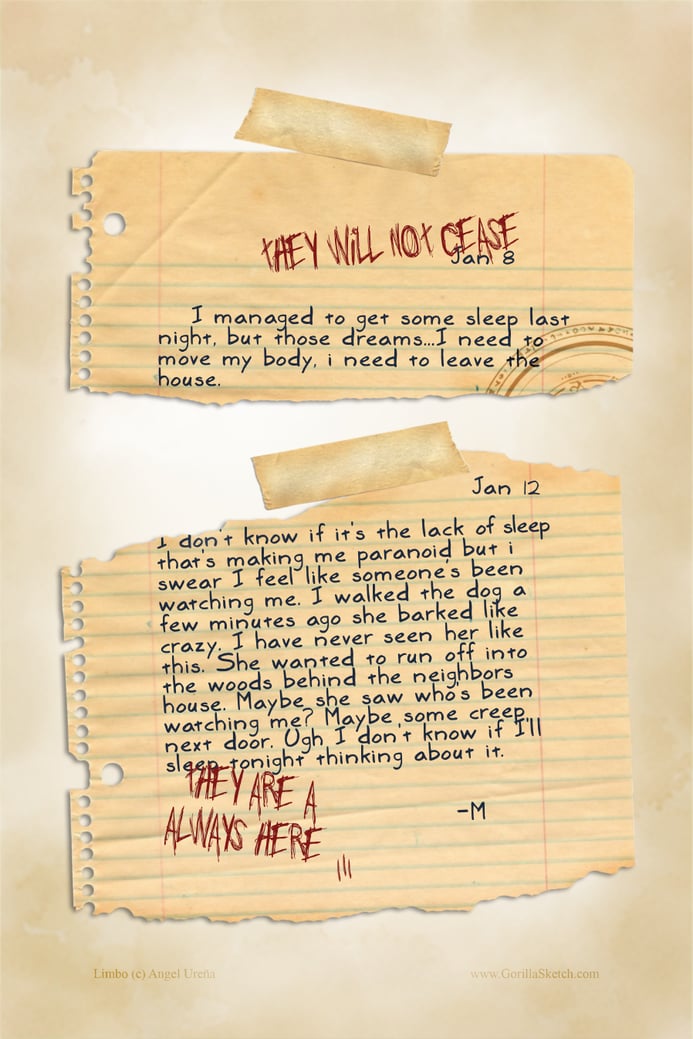 THEY WILL NOT CEASE
Jan 8
I managed to get some sleep last
night, but those dreams...I need to
move my body, i need to leave the
house.
Jan 12
I don't know if it's the lack of sleep
that's making me paranoid but i
swear I feel like someone's been
watching me. I walked the dog a
few minutes ago she barked like
crazy. I have never seen her like
this. She wanted to run off into
the woods behind the neighbors
house. Maybe she saw who's been
watching me? Maybe some creep
next door. Ugh I don't know if I'll
sleep tonight thinking about it.
THEY ARE A
ALWAYS HERE
-M
Limbo (c) Angel Ureña
www.GorillaSketch.com